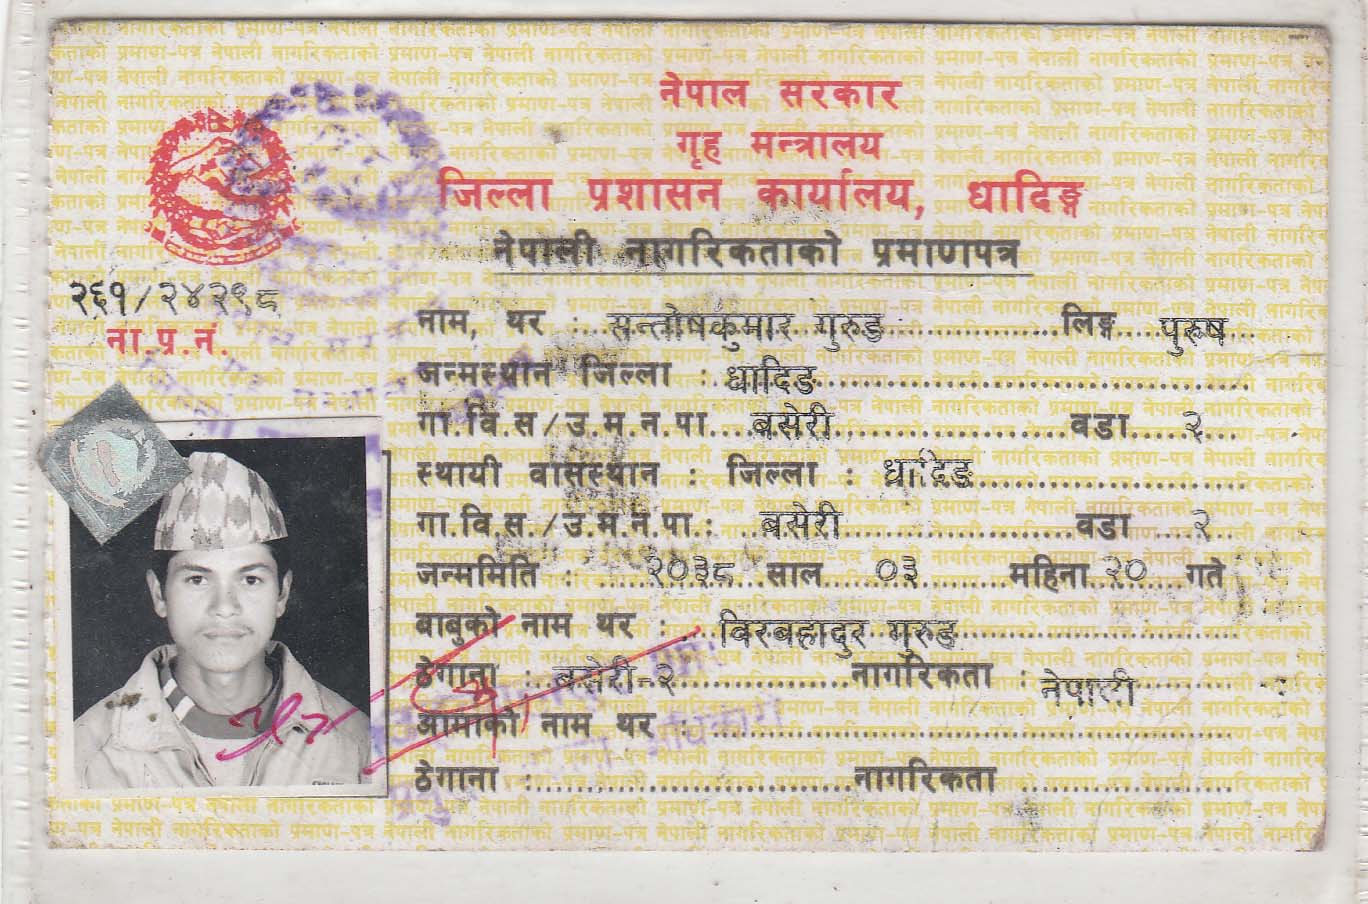 नेपाल सरकार
गृह मन्त्रालय
जिल्ला प्रशासन कार्यालय, धादिङ्ग
नेपाली नागरिकताको प्रमाणपत्र
२६१/२४२९८
ना.प्र.नं.
नाम, थर : सन्तोषकुमार गुरुङ लिङ्ग पुरुष
जन्मस्थान जिल्ला : धादिङ
गा.वि.स/उ.म.न.पा. बसेरी वडा २
स्थायी वासस्थान : जिल्ला : धादिङ
गा.वि.स./उ.म.न.पा.: बसेरी वडा २
जन्ममिति : २०३८ साल ०३ महिना २० गते
बाबुको नाम थर : विरबहादुर गुरुङ
ठेगाना : बसेरी-२ नागरिकता : नेपाली
आमाको नाम थर :
ठेगाना : नागरिकता